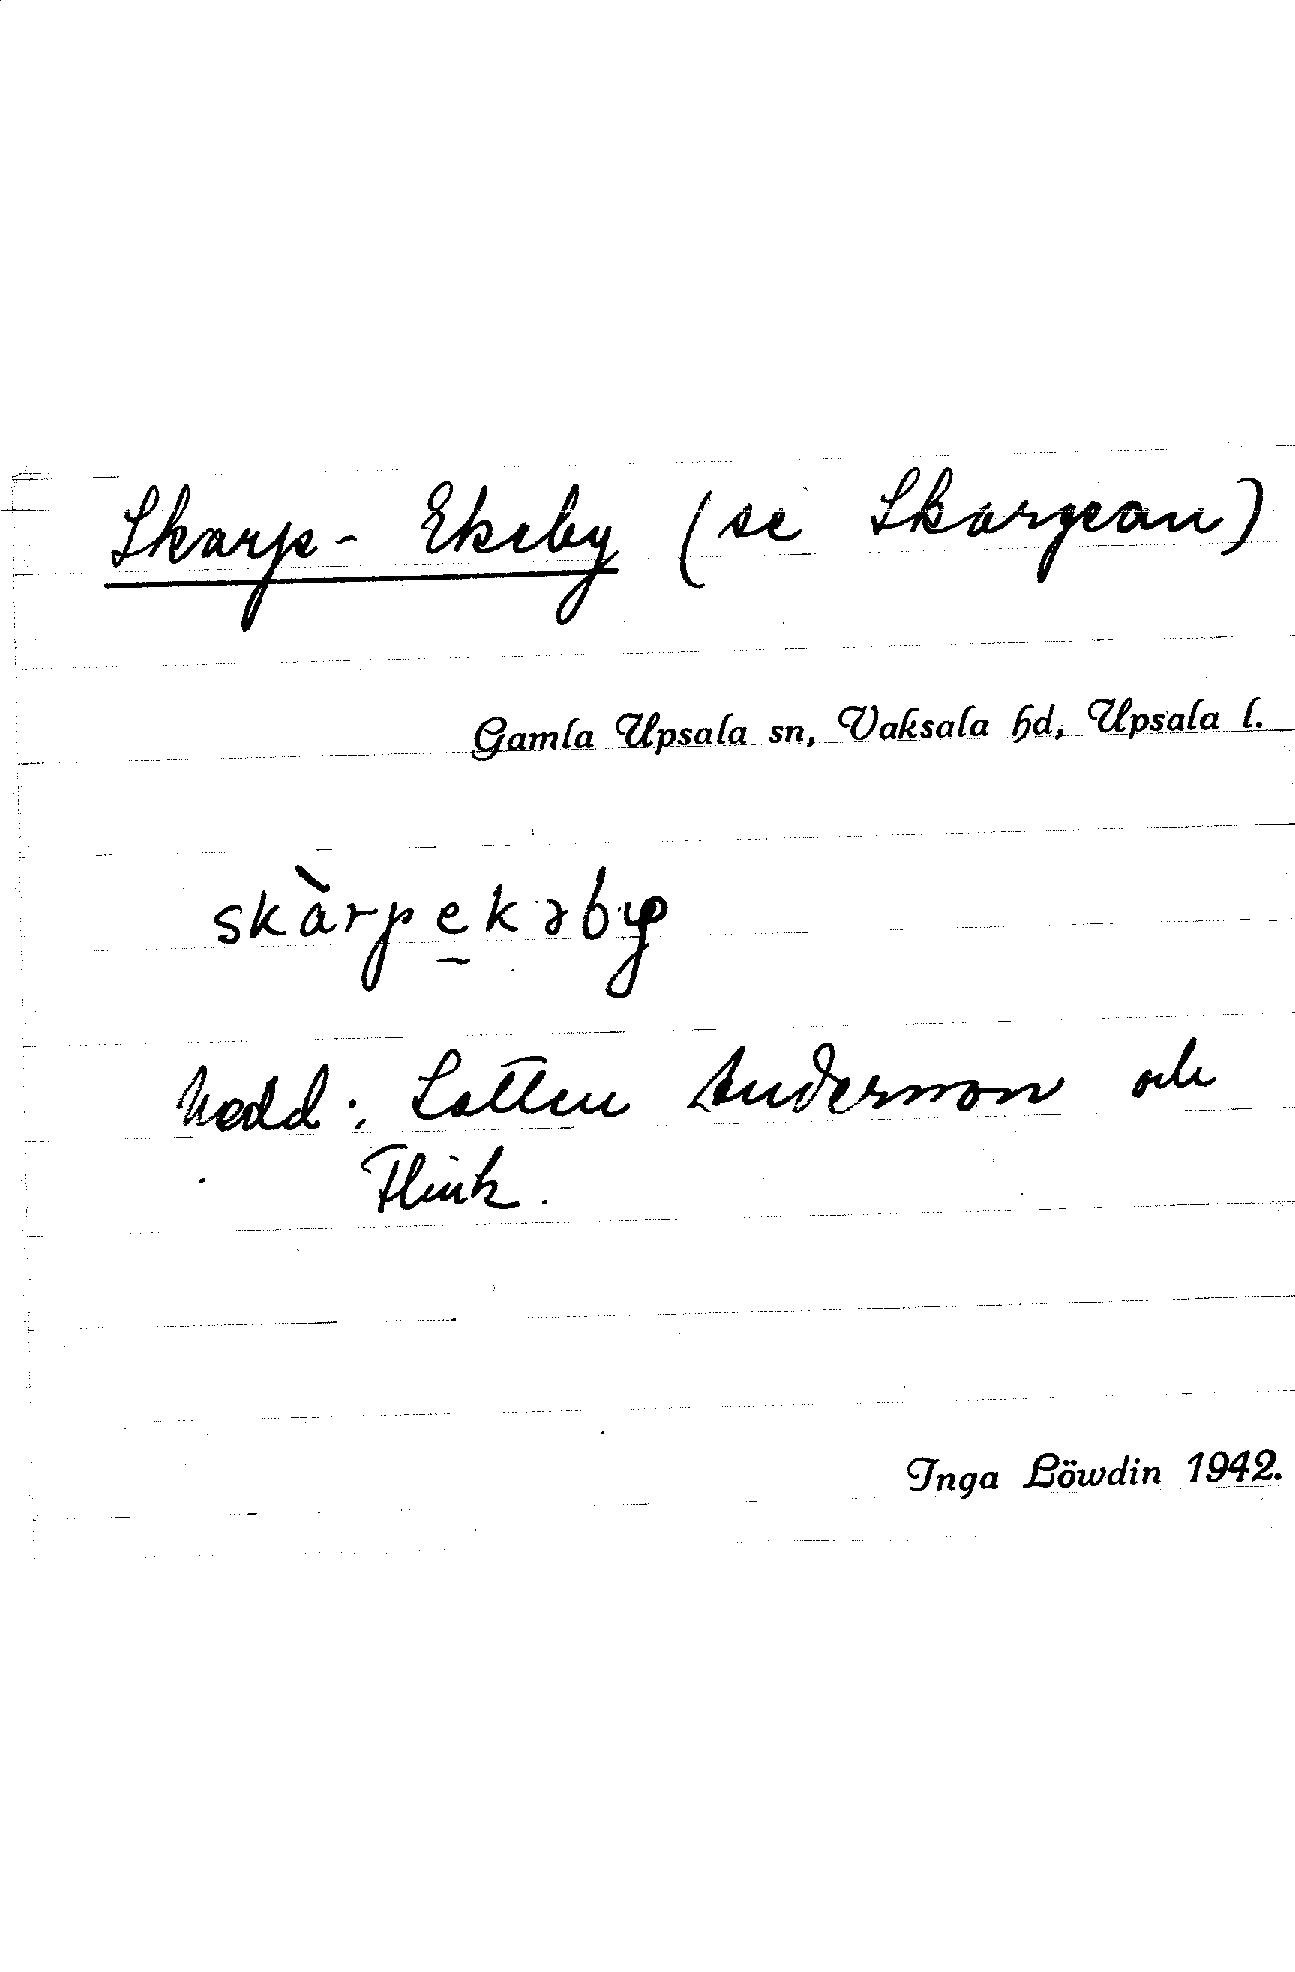 Skarp-Ekeby (se Skargean)
Gamla Upsala sn, Vaksala hd, Upsala l.
skàrpe̲kəby
Medd: Lotten Andersson och
Flink.
Inga Löwdin 1942.